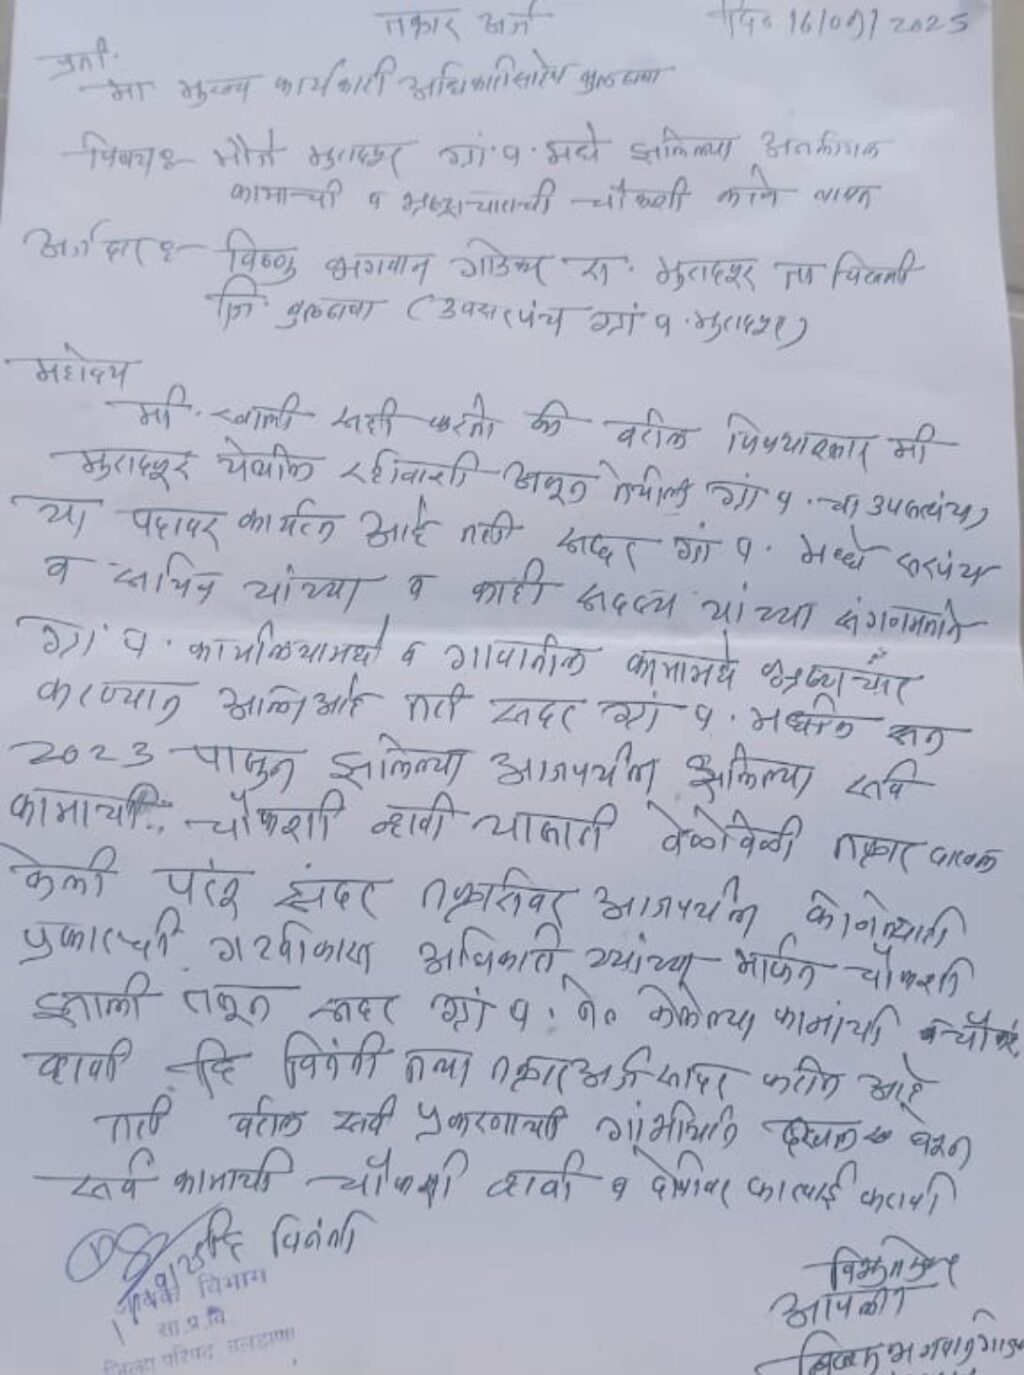 तक्रार अर्ज दि० 16/09/2025
प्रती.
मा मुख्य कार्यकारी अधिकारीसाहेब बुलढाणा
विषय :- मौजे मुरादपुर ग्रां. प. मधे झालेल्या
कामाची व भ्रष्टाचाराची चौकशी
अर्जदार :- विष्णु भगवान रा. मुरादपुर ता चिखली
जि. बुलढाणा (उपसरपंच ग्रां प. मुरादपुर)
महोदय
मी. खाली सही करतो की वरील विषयानुसार मी
मुरादपुर येथील रहीवाशी असून तेथील ग्रां प. चा उपसरपंच
या पदावर कार्यरत आहे तरी सदर ग्रां प. मध्ये सरपंच
व सचिव यांच्या व काही सदस्य यांच्या संगणमताने
ग्रां प. कार्यालयामधे व गावातील कामामधे भ्रष्टाचार
करण्यात आला आहे तरी सदर ग्रां प. मधील सन
2023 पासुन झालेल्या आजपर्यंत झालेल्या सर्व
कामाची चौकशी व्हावी यासाठी वेळोवेळी तक्रार दाखल
केली परंतू सदर तक्रारीवर आजपर्यंत कोणत्याही
प्रकारची गटविकास अधिकारी यांच्या मार्फत चौकशी
झाली नसून सदर ग्रां प. ने केलेल्या कामांची
व्हावी हि विनंती तथा तक्रार अर्ज सादर करीत आहे
तरी वरील सर्व प्रकरणाची गांभीर्याने दखल घेऊन
सर्व कामाची चौकशी व्हावी व दोषीवर कारवाई करावी
हि विनंती
आवक विभाग
सा.प्र.वि.
जिल्हा परिषद बुलढाणा
आपला